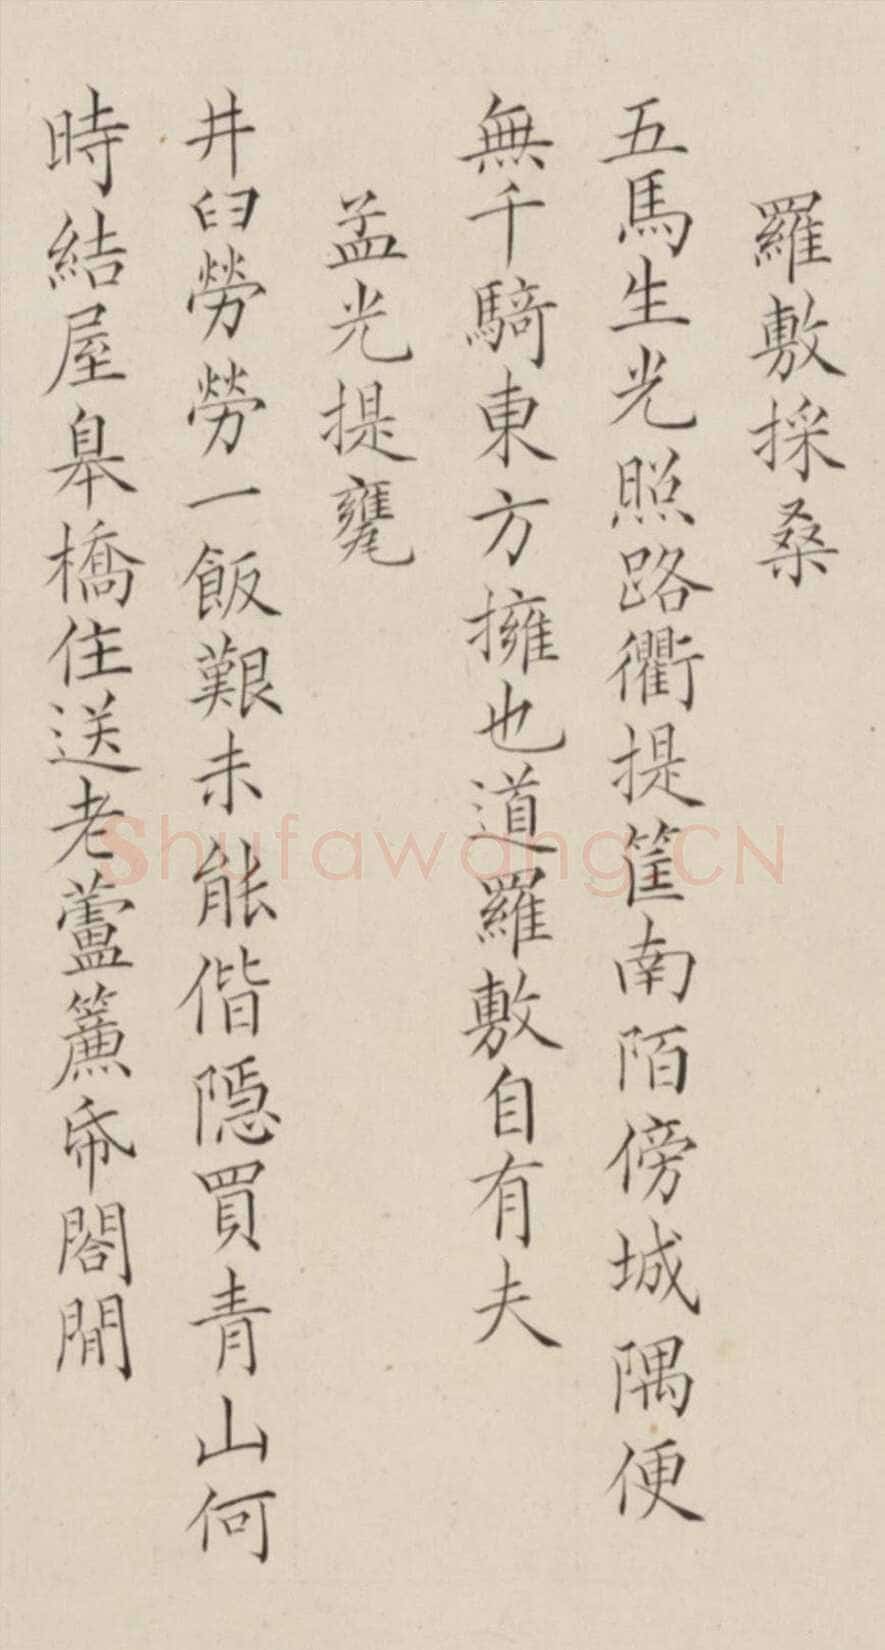 羅敷採桑
五馬生光照路衢提筐南陌傍城隅便
無千騎東方擁也道羅敷自有夫
孟光提甕
井臼勞勞一飯艱未能偕隱買青山何
時結屋皋橋住送老蘆簾帋閣閒
Shufawang.CN